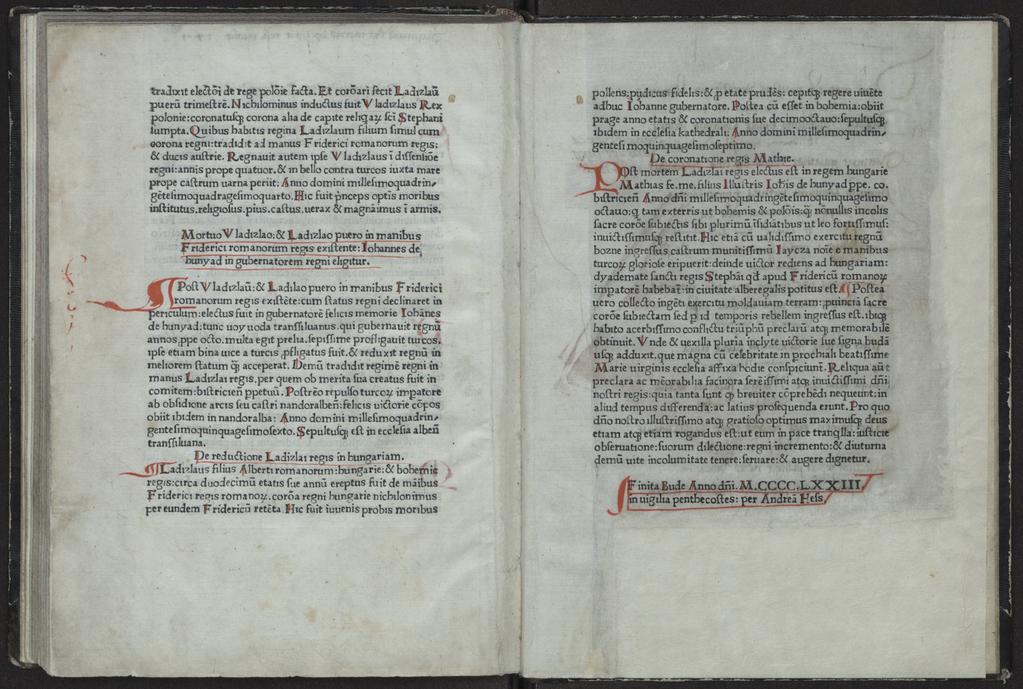 traduxit electōi de rege polōie facta. Et corōari fecit Ladizlaū
puerū trimestrē. Nichilominus inductus fuit Vladizlaus Rex
polonie: coronatusqȝ corona alia de capite reliqaꝝ sci Stephani
sumpta. Quibus habitis regina Ladizlaum filium simul cum
corona regni: tradidit ad manus Friderici romanorum regis:
& ducis austrie. Regnauit autem ipse Vladizlaus ī dissenhōe
regni: annis prope quatuor. & in bello contra turcos iuxta mare
prope castrum uarna periit: Anno domini millesimoquadrin,
gētesimoquadragesimoquarto. Hic fuit pnceps optis moribus
institutus. religiosus. pius. castus. uerax & magnaīmus ī armis.
Mortuo Vladizlao: & Ladizlao puero in manibus
Friderici romanorum regis existente: Iohannes de
hunyad in gubernatorem regni eligitur.
Post Vladizlaū: & Ladilao puero in manibus Friderici
romanorum regis existēte: cum status regni declinaret in
periculum: electus fuit in gubernatorē felicis memorie Iohānes
de hunyad: tunc uoyuoda transsiluanus. qui gubernauit regnū
annos. ppe octo. multa egit prelia. sepissime profligauit turcos.
ipse etiam bina uice a turcis pfligatus fuit. & reduxit regnū in
meliorem statum qȝ acceperat. Demū tradidit regimē regni in
manus Ladizlai regis. per quem ob merita sua creatus fuit in
comitem: bistricien̄ ppetuū. Postrēo repulso turcoꝝ impatore
ab obsidione arcis seu castri nandoralben̄: felicis uictorie cōpos
obiit ibidem in nandoralba: Anno domini millesimoquadrin,
gentesimoquinquagesimosexto. Sepultusqȝ est in ecclesia alben̄
transsiluana.
De reductione Ladizlai regis in hungariam.
Ladizlaus filius Alberti romanorum: hungarie: & bohemie
regis: circa duodecimū etatis sue annū ereptus fuit de māibus
Friderici regis romanoꝝ. corōa regni hungarie nichilonimus
per eundem Fridericū retēta. Hic fuit iuuenis probis moribus
pollens: pudicus fidelis: &, p etate prudēs: cepitqȝ regere uiuēte
adhuc Iohanne gubernatore. Postea cū esset in bohemia: obiit
prage anno etatis & coronationis sue decimooctauo: sepultusqȝ
ibidem in ecclesia kathedrali: Anno domini millesimoquadrin,
gentesimoquinquagesimoseptimo.
De coronatione regis Mathie.
POst mortem Ladizlai regis electus est in regem hungarie
Mathias fe. me. filius Illustris Iohīs de hunyad ppe. co.
bistricien̄ Anno dn̄i millesimoquadringētesimoquinquagesimo
octauo: q tam exterris ut bohemis & polōis: qȝ nōnullis incolis
sacre corōe subiectis sibi plurimū īsidiatibus ut leo fortissimus:
inuictissimusqȝ restitit. Hic etiā cū ualidissimo exercitu regnū
bozne ingressus. castrum munitissimū Iaycza noīe e manibus
turcoꝝ gloriose eripuerit: deinde uictor rediens ad hungariam:
dyademate sancti regis Stephāi qd apud Fridericū romanoꝝ
impatorē habebat̄: in ciuitate alberegalis potitus est. Postea
uero collecto ingēti exercitu moldauiam terram: puincīa sacre
corōe subiectam sed p id temporis rebellem ingressus est. ibiqȝ
habito acerbissimo conflictu triūphū preclarū atqȝ memorabilē
obtinuit. Vnde & uexilla pluria inclyte uictorie sue signa budā
usqȝ adduxit. que magna cū celebritate in prochiali beatissime
Marie uirginis ecclesia affixa hodie conspiciunt̄. Reliqua aūt
preclara ac mēorabilia facinora serēissimi atqȝ inuictissimi dn̄i
nostri regis: quia tanta sunt qȝ breuiter cōprehēdi nequeunt: in
aliud tempus differenda: ac latius prosequenda erunt. Pro quo
dn̄o nostro illustrissimo atqȝ gratioso optimus maximusqȝ deus
etiam atqȝ etiam rogandus est: ut eum in pace tranqlla: iusticie
obseruatione: suorum dilectione: regni incremento: & diuturna
demū uite incolumitate tenere: seruare: & augere dignetur.
Finita Bude Anno dn̄i. M.CCCC.LXXIII.
in uigilia penthecostes: per Andreā Hess.